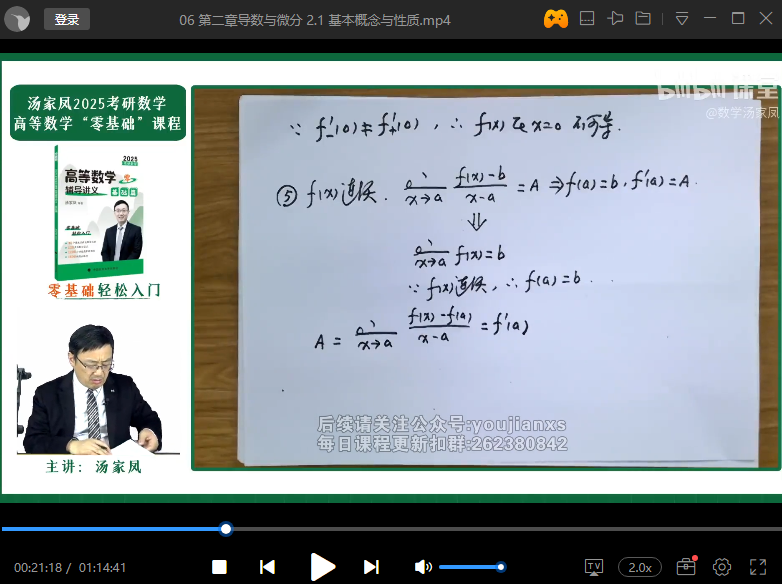 登录
06 第二章导数与微分 2.1 基本概念与性质.mp4
汤家凤2025考研数学
高等数学“零基础”课程
2025
高等数学
辅导讲义
零基础
轻松入门
零基础轻松入门
主讲: 汤家凤
bilibili课堂
@数学汤家凤
∵ f'₋(0) ≠ f'₊(0), ∴ f(x) 在 x=0 不可导.
⑤ f(x)连续. lim x→a (f(x)-b)/(x-a) = A ⇒ f(a)=b, f'(a)=A.
⇓
lim x→a f(x)=b
∵ f(x)连续, ∴ f(a)=b.
A = lim x→a (f(x)-f(a))/(x-a) = f'(a)
后续请关注公众号:youjianxs
每日课程更新扣群:262380842
00:21:18 / 01:14:41
TV
2.0x